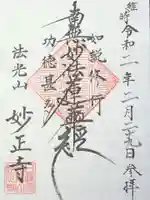 令和二年二月二十九日参拝
如説修行
南無妙法蓮華経
功徳甚多
法光山
妙正寺